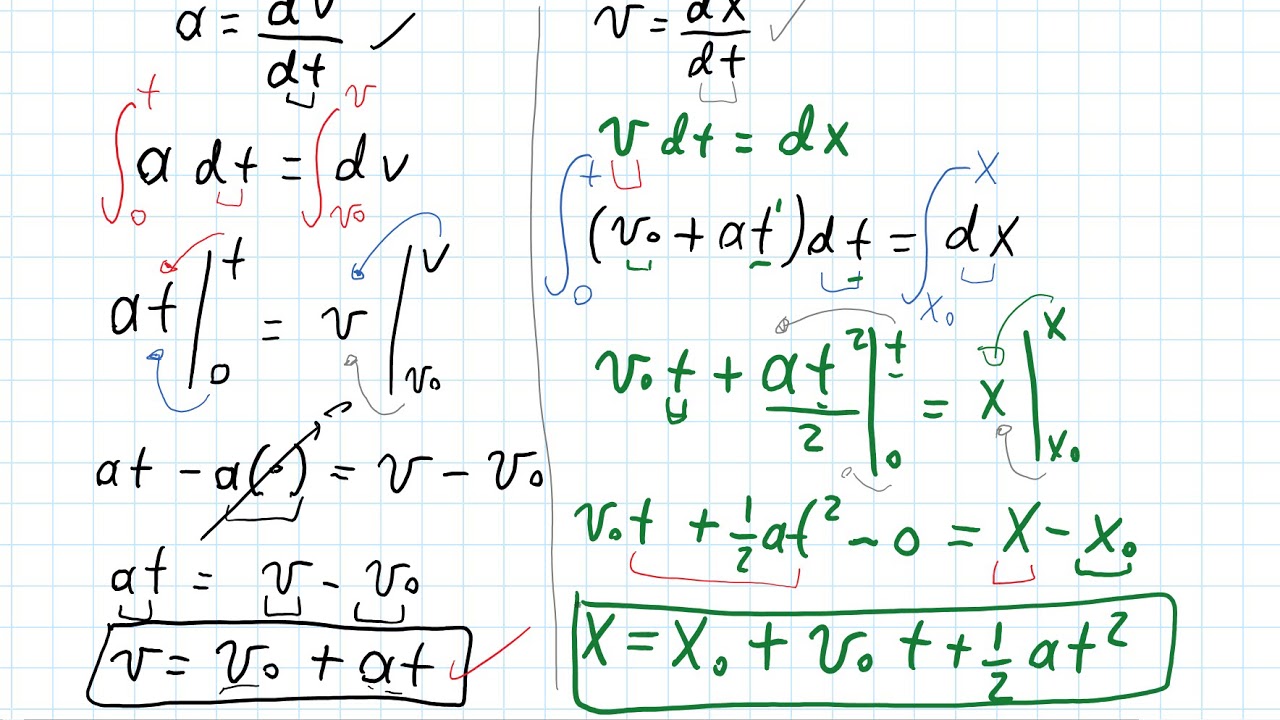 a = dv/dt ✓
∫₀ᵗ a dt = ∫ᵥ₀ᵛ dv
at |₀ᵗ = v |ᵥ₀ᵛ
at - a(0) = v - v₀
at = v - v₀
v = v₀ + at ✓
v = dx/dt ✓
v dt = dx
∫₀ᵗ (v₀ + at¹)dt = ∫ₓ₀ˣ dx
v₀t + at²/2 |₀ᵗ = x |ₓ₀ˣ
v₀t + 1/2 at² - 0 = x - x₀
x = x₀ + v₀t + 1/2 at²